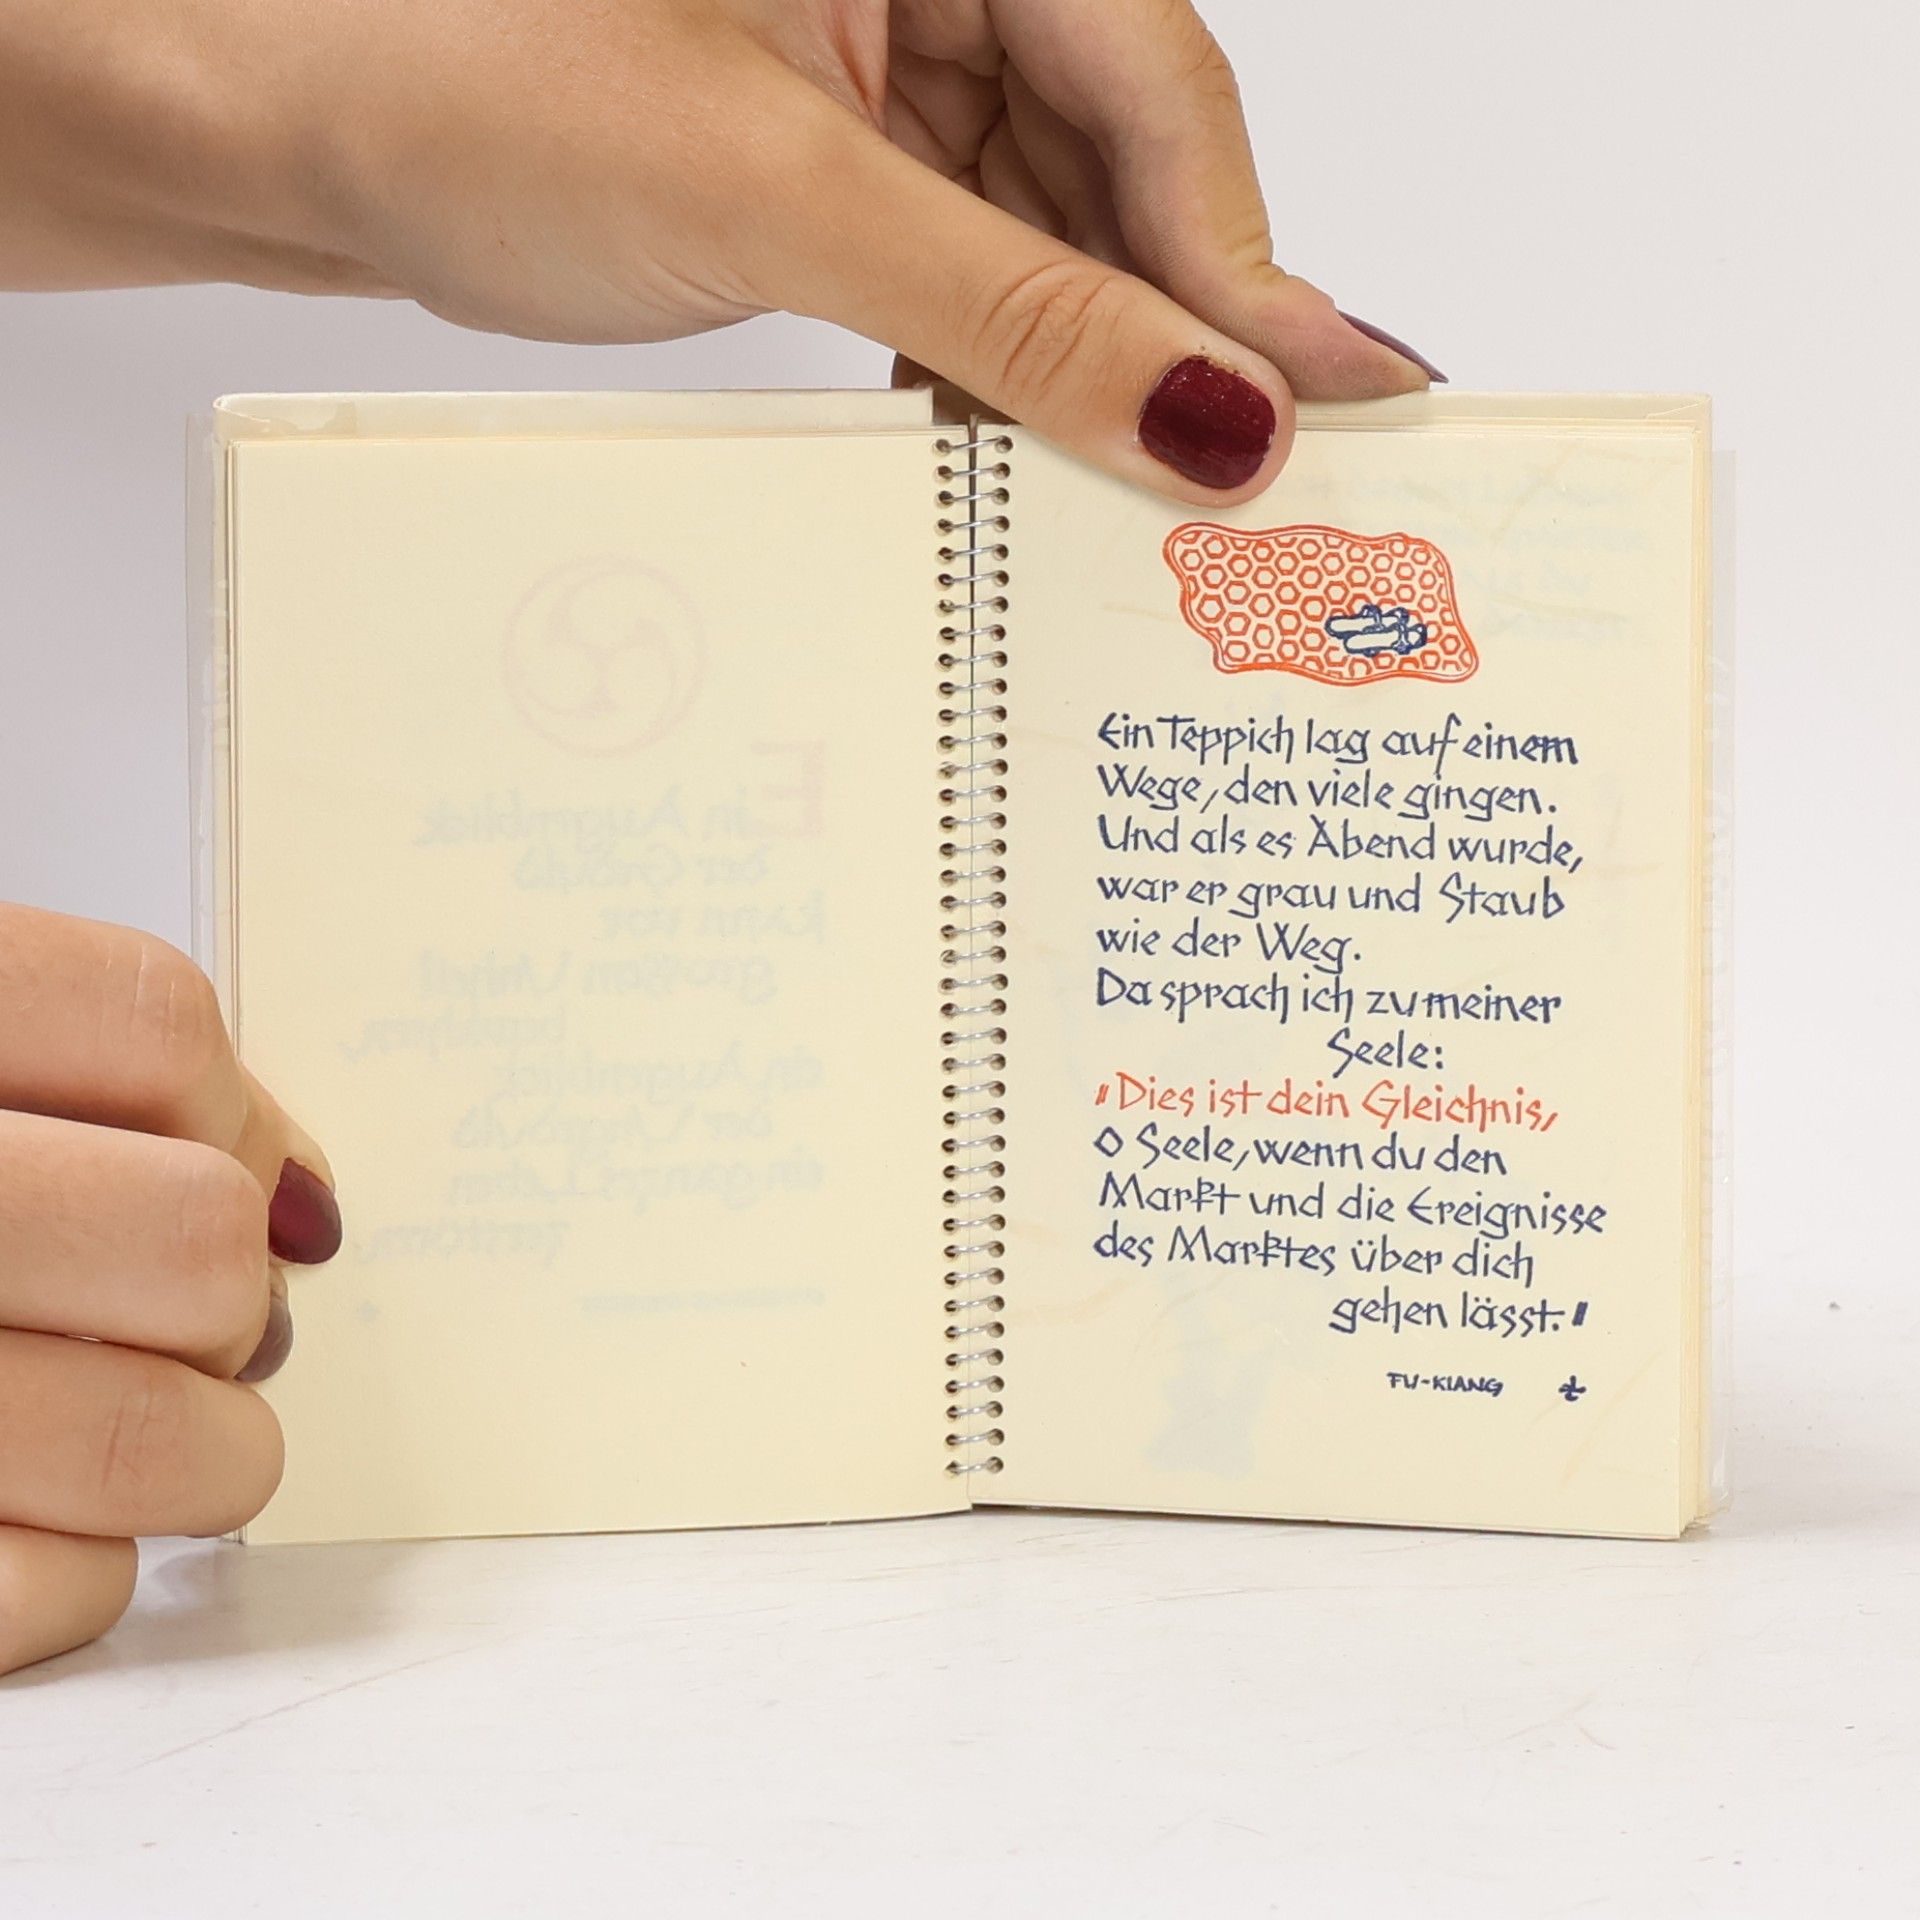 Ein Teppich lag auf einem
Wege, den viele gingen.
Und als es Abend wurde,
war er grau und Staub
wie der Weg.
Da sprach ich zu meiner
Seele:
"Dies ist dein Gleichnis,
O Seele, wenn du den
Markt und die Ereignisse
des Marktes über dich
gehen lässt."
FU-KIANG